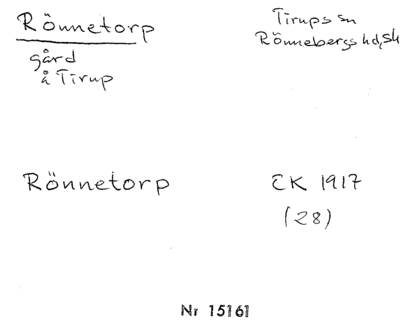 Rönnetorp
Tirups sn
Rönnebergs hd, Sk
gård
å Tirup
Rönnetorp
EK 1917
(28)
Nr 15161